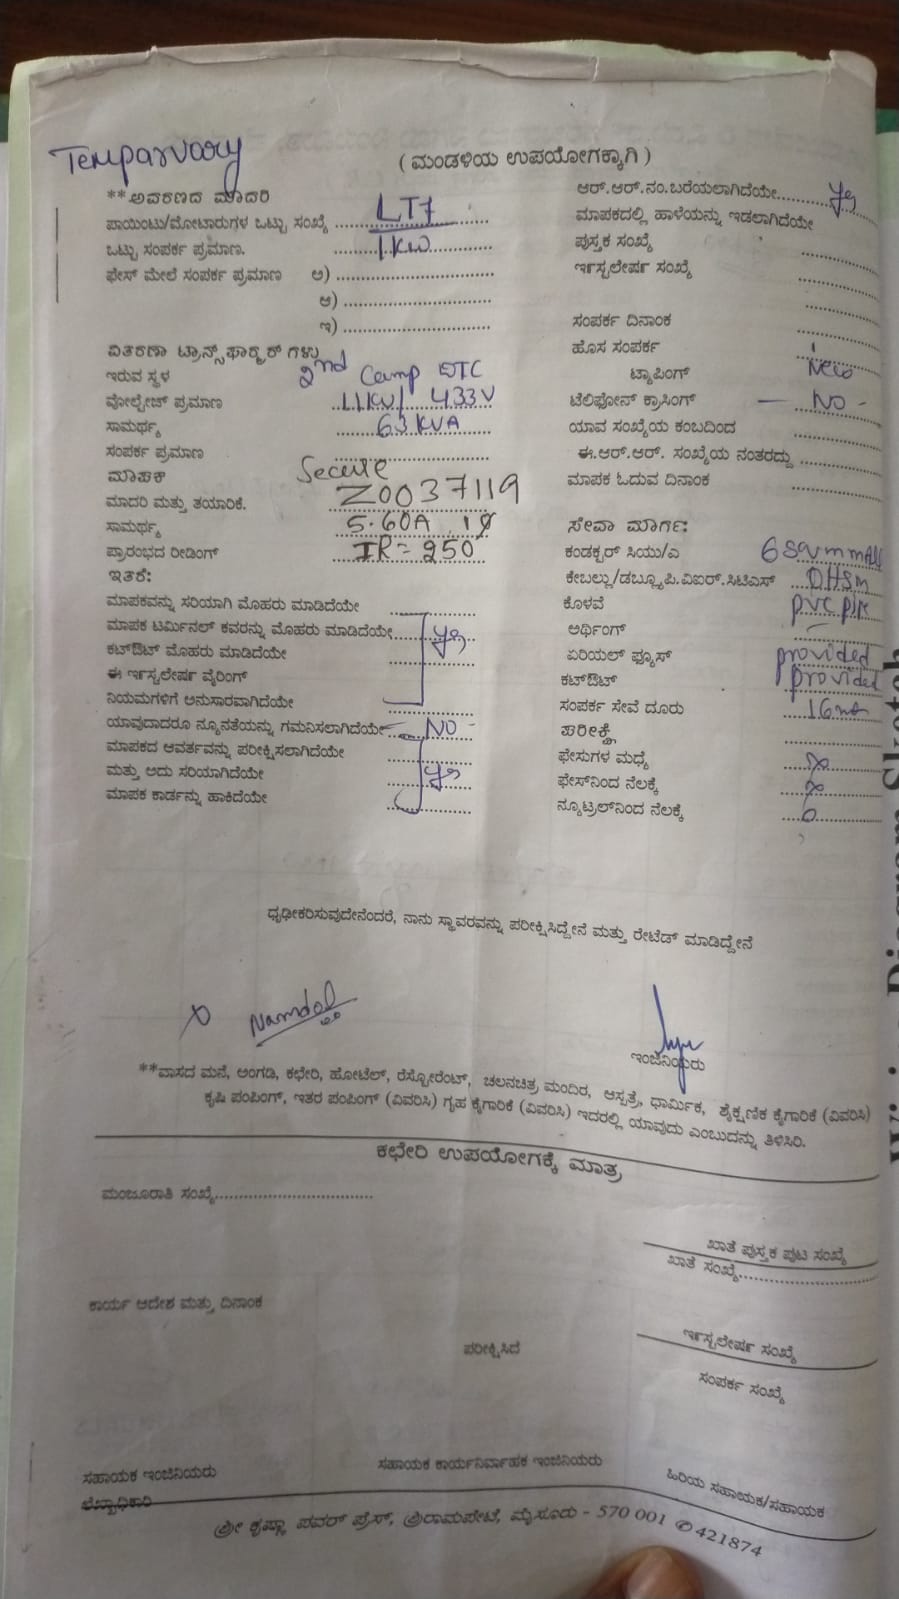 Temparvary
( ಮಂಡಳಿಯ ಉಪಯೋಗಕ್ಕಾಗಿ )
**ಅವರಣದ ಮಾದರಿ
ಪಾಯಿಂಟು/ಮೋಟಾರುಗಳ ಒಟ್ಟು ಸಂಖ್ಯೆ LT7
ಒಟ್ಟು ಸಂಪರ್ಕ ಪ್ರಮಾಣ. 1 KW
ಫೇಸ್ ಮೇಲೆ ಸಂಪರ್ಕ ಪ್ರಮಾಣ ಅ)
ಆ)
ಇ)
ವಿತರಣಾ ಟ್ರಾನ್ಸ್‌ಫಾರ್ಮರ್‌ಗಳು
ಇರುವ ಸ್ಥಳ 2nd Camp
ವೋಲ್ಟೇಜ್ ಪ್ರಮಾಣ 11KV/ 433V
ಸಾಮರ್ಥ್ಯ 63 KVA
ಸಂಪರ್ಕ ಪ್ರಮಾಣ
ಮಾಪಕ Secure
ಮಾದರಿ ಮತ್ತು ತಯಾರಿಕೆ. Z0037119
ಸಾಮರ್ಥ್ಯ 5-60A 1Ø
ಪ್ರಾರಂಭದ ರೀಡಿಂಗ್ IR= 250
ಇತರೆ:
ಮಾಪಕವನ್ನು ಸರಿಯಾಗಿ ಮೊಹರು ಮಾಡಿದೆಯೇ
ಮಾಪಕ ಟರ್ಮಿನಲ್ ಕವರನ್ನು ಮೊಹರು ಮಾಡಿದೆಯೇ
ಕಟ್‌ಔಟ್ ಮೊಹರು ಮಾಡಿದೆಯೇ
ಈ ಇನ್‌ಸ್ಟಲೇಷನ್ ವೈರಿಂಗ್
ನಿಯಮಗಳಿಗೆ ಅನುಸಾರವಾಗಿದೆಯೇ
ಯಾವುದಾದರೂ ನ್ಯೂನತೆಯನ್ನು ಗಮನಿಸಲಾಗಿದೆಯೇ NO
ಮಾಪಕದ ಆವರ್ತವನ್ನು ಪರೀಕ್ಷಿಸಲಾಗಿದೆಯೇ
ಮತ್ತು ಅದು ಸರಿಯಾಗಿದೆಯೇ
ಮಾಪಕ ಕಾರ್ಡನ್ನು ಹಾಕಿದೆಯೇ
ಆರ್.ಆರ್.ನಂ.ಬರೆಯಲಾಗಿದೆಯೇ
ಮಾಪಕದಲ್ಲಿ ಹಾಳೆಯನ್ನು ಇಡಲಾಗಿದೆಯೇ
ಪುಸ್ತಕ ಸಂಖ್ಯೆ
ಇನ್‌ಸ್ಟಲೇಷನ್ ಸಂಖ್ಯೆ
ಸಂಪರ್ಕ ದಿನಾಂಕ
ಹೊಸ ಸಂಪರ್ಕ
ಟ್ಯಾಪಿಂಗ್ New
ಟೆಲಿಫೋನ್ ಕ್ರಾಸಿಂಗ್ NO
ಯಾವ ಸಂಖ್ಯೆಯ ಕಂಬದಿಂದ
ಈ.ಆರ್.ಆರ್. ಸಂಖ್ಯೆಯ ನಂತರದ್ದು
ಮಾಪಕ ಓದುವ ದಿನಾಂಕ
ಸೇವಾ ಮಾರ್ಗ:
ಕಂಡಕ್ಟರ್ ಸಿಯು/ಎ
ಕೇಬಲ್ಲು/ಡಬ್ಲ್ಯೂ.ಪಿ.ವಿಐಆರ್.ಸಿಟಿಎಸ್
ಕೊಳವೆ
ಅರ್ಥಿಂಗ್
ಏರಿಯಲ್ ಫ್ಯೂಸ್ provided
ಕಟ್‌ಔಟ್ provided
ಸಂಪರ್ಕ ಸೇವೆ ದೂರು
ಪಾರೀಕ್ಷೆ
ಫೇಸುಗಳ ಮಧ್ಯೆ
ಫೇಸ್‌ನಿಂದ ನೆಲಕ್ಕೆ
ನ್ಯೂಟ್ರಲ್‌ನಿಂದ ನೆಲಕ್ಕೆ
ಧೃಢೀಕರಿಸುವುದೇನೆಂದರೆ, ನಾನು ಸ್ಥಾವರವನ್ನು ಪರೀಕ್ಷಿಸಿದ್ದೇನೆ ಮತ್ತು ರೇಟೆಡ್ ಮಾಡಿದ್ದೇನೆ
ಇಂಜಿನಿಯರು
**ವಾಸದ ಮನೆ, ಅಂಗಡಿ, ಕಛೇರಿ, ಹೋಟೆಲ್, ರೆಸ್ಟೋರೆಂಟ್, ಚಲನಚಿತ್ರ ಮಂದಿರ, ಆಸ್ಪತ್ರೆ, ಧಾರ್ಮಿಕ, ಶೈಕ್ಷಣಿಕ ಕೈಗಾರಿಕೆ (ವಿವರಿಸಿ)
ಕೃಷಿ ಪಂಪಿಂಗ್, ಇತರ ಪಂಪಿಂಗ್ (ವಿವರಿಸಿ) ಗೃಹ ಕೈಗಾರಿಕೆ (ವಿವರಿಸಿ) ಇದರಲ್ಲಿ ಯಾವುದು ಎಂಬುದನ್ನು ತಿಳಿಸಿರಿ.
ಕಛೇರಿ ಉಪಯೋಗಕ್ಕೆ ಮಾತ್ರ
ಮಂಜೂರಾತಿ ಸಂಖ್ಯೆ
ಖಾತೆ ಪುಸ್ತಕ ಪುಟ ಸಂಖ್ಯೆ
ಖಾತೆ ಸಂಖ್ಯೆ
ಕಾರ್ಯ ಆದೇಶ ಮತ್ತು ದಿನಾಂಕ
ಪರೀಕ್ಷಿಸಿದೆ
ಇನ್‌ಸ್ಟಲೇಷನ್ ಸಂಖ್ಯೆ
ಸಂಪರ್ಕ ಸಂಖ್ಯೆ
ಸಹಾಯಕ ಇಂಜಿನಿಯರು
ಸಹಾಯಕ ಕಾರ್ಯನಿರ್ವಾಹಕ ಇಂಜಿನಿಯರು
ಹಿರಿಯ ಸಹಾಯಕ/ಸಹಾಯಕ
ಲೆಖ್ಖಾಧಿಕಾರಿ
ಶ್ರೀ ಕೃಷ್ಣಾ ಪವರ್ ಪ್ರೆಸ್, ಶ್ರೀರಾಮಪೇಟೆ, ಮೈಸೂರು - 570 001 ✆ 421874